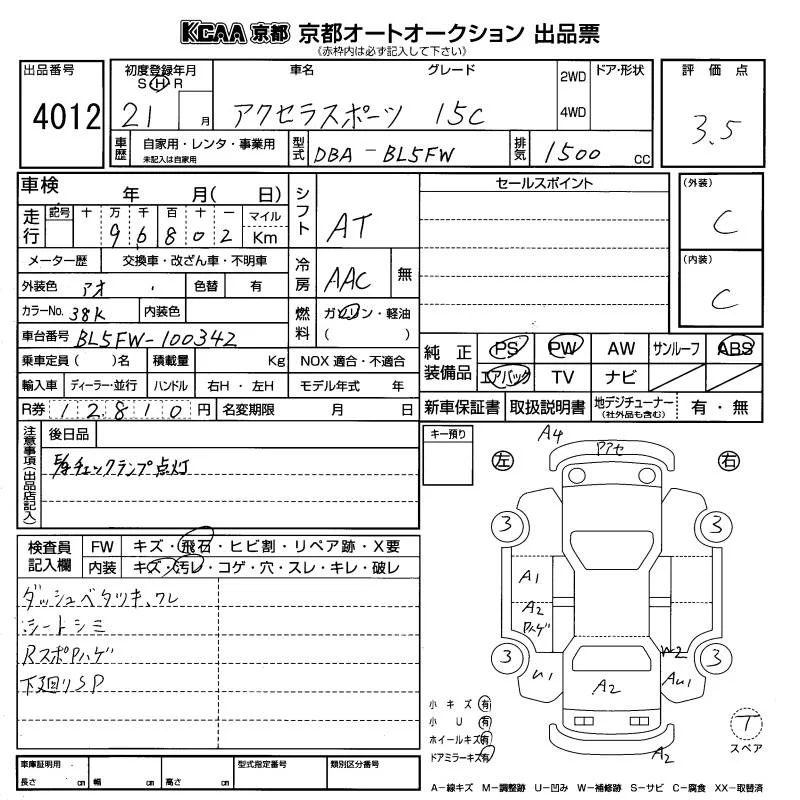 KCAA 京都 京都オートオークション 出品票
(赤枠内は必ず記入して下さい)
出品番号
4012
初度登録年月
S H R
21 月
車名 グレード
アクセラスポーツ 15C
2WD
4WD
ドア・形状
評価点
3.5
車歴
自家用・レンタ・事業用
未記入は自家用
型式
DBA-BL5FW
排気
1500 cc
車検 年 月( 日)
走行
記号 十 万 千 百 十 一 マイル
9 6 8 0 2 Km
シフト
AT
メーター歴 交換車・改ざん車・不明車
外装色 アオ 色替 有
冷房
AAC 無
カラーNo. 38K 内装色
燃料
ガソリン・軽油
( )
車台番号 BL5FW-100342
乗車定員 ( )名 積載量 Kg NOX 適合・不適合
輸入車 ディーラー・並行 ハンドル 右H・左H モデル年式 年
R券 12810円 名変期限 月 日
セールスポイント
(外装)
C
(内装)
C
純正装備品
PS PW AW サンルーフ ABS
エアバック TV ナビ
新車保証書 取扱説明書 地デジチューナー
(社外品も含む)
有・無
注意事項(出品店記入)
後日品
チェックランプ点灯
キー預り
検査員記入欄
FW キズ・飛石・ヒビ割・リペア跡・X要
内装 キズ・汚レ・コゲ・穴・スレ・キレ・破レ
ダッシュベタツキ、ワレ
シートシミ
RスポPハゲ
下廻りSP
A4
アアセ
左 右
3 3
A1
A2
Pハゲ
3 3
U1
W2
AU1
A2
A2
小キズ 有
小U 有
ホイールキズ 有
ドアミラーキズ 有
T
スペア
車庫証明用
長さ cm 幅 cm 高さ cm
型式指定番号
類別区分番号
A-線キズ M-調整跡 U-凹み W-補修跡 S-サビ C-腐食 XX-取替済